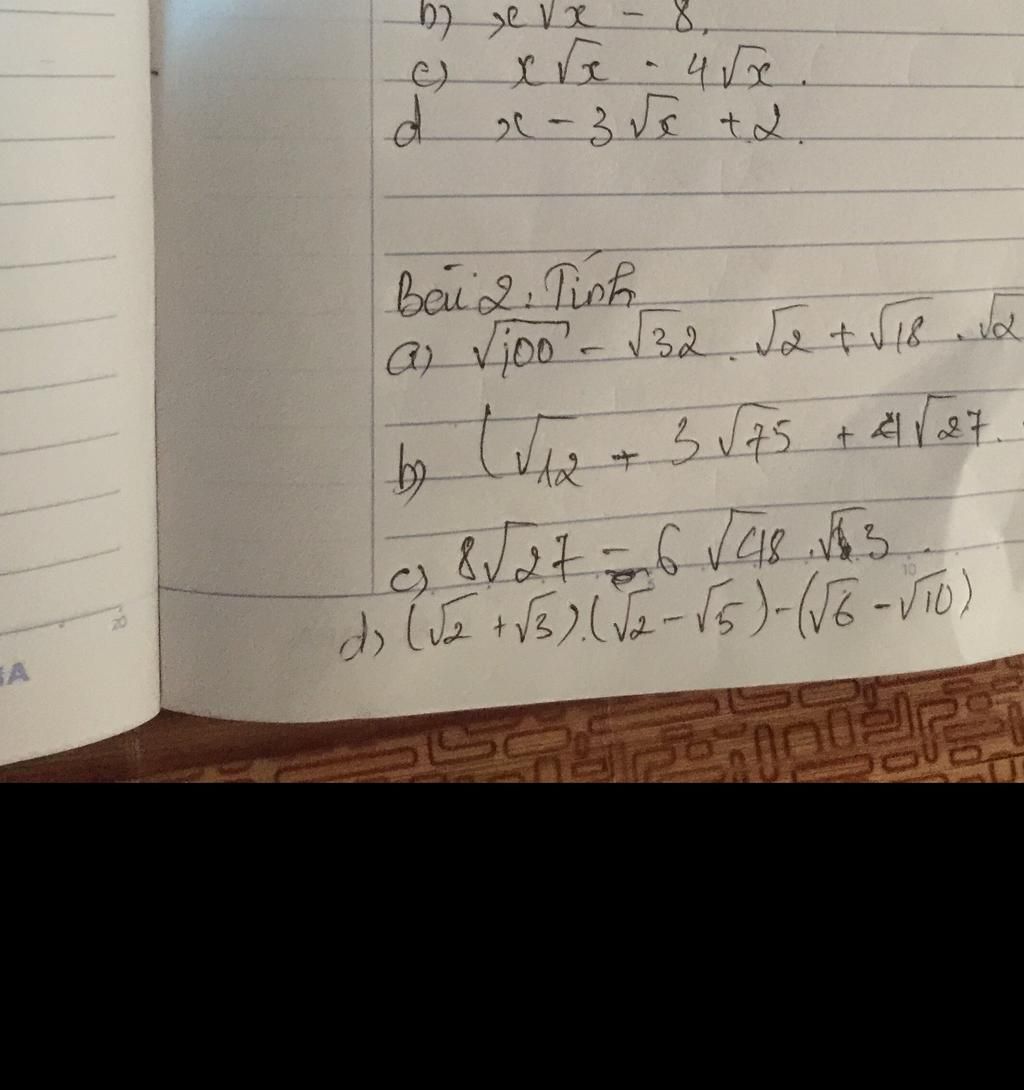 b) x√x - 8.
c) x√x - 4√x.
d x - 3√x + 2.
Bài 2: Tính
a) √100 - √32 . √2 + √18 . √2
b) (√12 + 3√75 + 4√27.
c) 8√27 - 6√48 . √3.
10
d) (√2 + √3).(√2 - √5) - (√6 - √10)
20